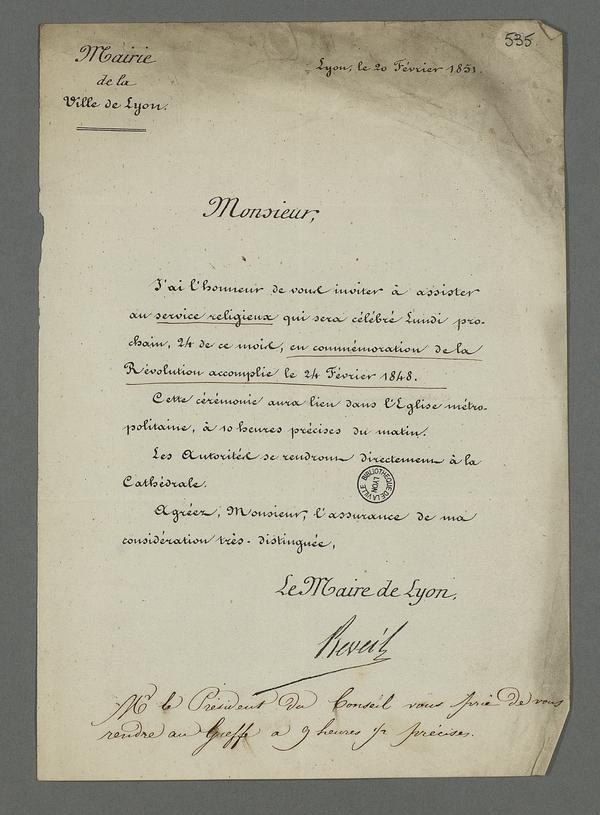 535
Mairie
de la
Ville de Lyon.
Lyon, le 20 Février 1851.
Monsieur,
J'ai l'honneur de vous inviter à assister
au service religieux qui sera célébré Lundi pro-
chain, 24 de ce mois, en commémoration de la
Révolution accomplie le 24 Février 1848.
Cette cérémonie aura lieu dans l'Eglise métro-
politaine, à 10 heures précises du matin.
Les Autorités se rendront directement à la
Cathédrale.
BIBLIOTHEQUE DE LA VILLE
LYON
Agréez, Monsieur, l'assurance de ma
considération très-distinguée,
Le Maire de Lyon,
Reveil
Mr le Président du Conseil vous prie de vous
rendre au Greffe à 9 heures 1/2 précises.